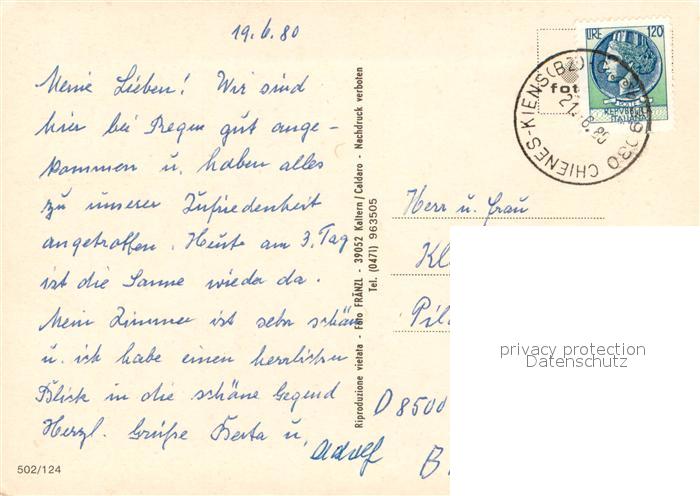 19.6.80
Meine Lieben! Wir sind
hier bei Regen gut ange-
kommen u. haben alles
zu unserer Zufriedenheit
angetroffen. Heute am 3. Tag
ist die Sonne wieder da.
Mein Zimmer ist sehr schön
u. ich habe einen herrlichen
Blick in die schöne Gegend
Herzl. Grüße Berta u.
Adolf
502/124
Riproduzione vietata - Foto FRÄNZL - 39052 Kaltern / Caldaro - Nachdruck verboten
Tel. (0471) 963505
LIRE 120
REPUBBLICA
ITALIANA
39030 CHIENES-KIENS (BZ)
21.-6.80
fot
Herr u. Frau
Kl
Pil
D 8500
B
privacy protection
Datenschutz